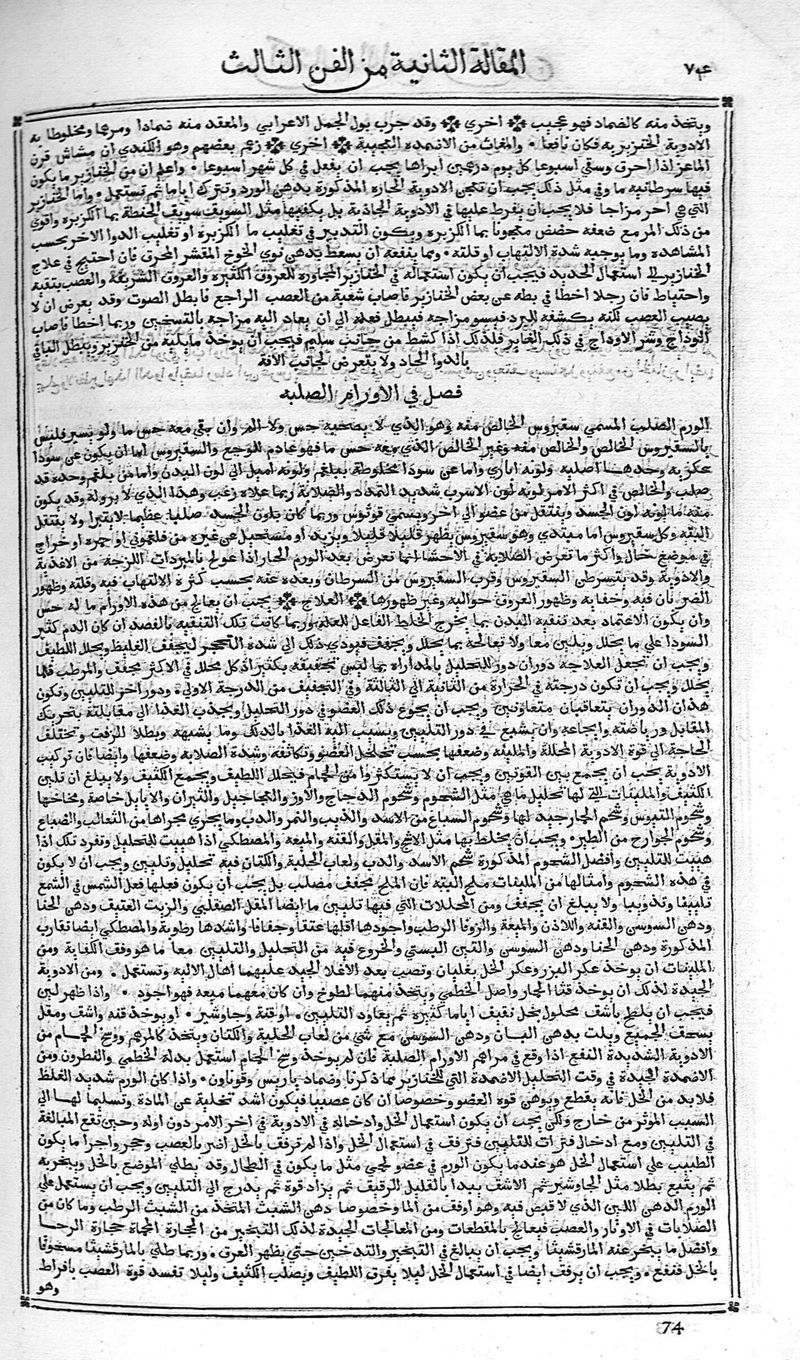 ٧٤
المقالة الثانية من الفن الثالث
ويتخذ منه كالضماد فهو عجيب ✤ اخري ✤ وقد جرب بول الجمل الاعرابي والمعقد منه ضمادا ومرهما ومخلوطا به
الادوية الخنزيريه فكان نافعا ٠ والمغاث من الاضمده العجيبة ✤ اخري ✤ زعم بعضهم وهو الكندي ان مشاش قرن
الماعز اذا احرق وسقي اسبوعا كل يوم درهمين ابراها يجب ان يفعل في كل شهر اسبوعا ٠ واعلم ان من الخنازير ما يكون
فيها سرطانيه ما وفي مثل ذلك يجب ان تعجن الادوية الحاره المذكورة بدهن الورد وتترك اياما ثم تستعمل ٠ واما الخنازير
التي هي احر مزاجا فلا يجب ان يفرط عليها في الادوية الجاذبة بل يكفيها مثل السويق سويق الحنطة بما الكزبره واقوي
من ذلك المر مع ضعفه حضض معجونا بما الكزبره ويكون التدبير في تغليب ما الكزبره او تغليب الدوا الاخر بحسب
المشاهده وما يوجبه شدة الالتهاب او قلته ٠ ومما ينفعه ان يسعط بدهن نوي الخوخ المقشر المحرق فان احتيج في علاج
الخنازير الي استعمال الحديد فيجب ان يكون استعماله في الخنازير المجاورة للعروق الكبيره والعروق الشريفة والعصب بتقية
واحتياط فان رجلا اخطا في بطه عن بعض الخنازير فاصاب شعبة من العصب الراجع فابطل الصوت وقد يعرض ان لا
يصيب العصب لكنه يكشفه للبرد فيسو مزاجه فيبطل فعله الي ان يعاد اليه مزاجه بالتسخين وربما اخطا فاصاب
الوداج وشر الاوداج في ذلك الغاير فلذلك اذا كشط من جانب سليم فيجب ان يوخذ ما يليه من الخنزير ويبطل الباقي
بالدوا الحاد ولا يتعرض لجانب الافة
فصل في الاورام الصلبه
الورم الصلب المسمي سقيروس الخالص منه وهو الذي لا يصحبه حس ولا الم وان بقي معه حس ما ولو يسير فليس
بالسقيروس الخالص والخالص منه وغير الخالص الذي معه حس ما فهو عادم للوجع والسقيروس اما ان يكون عن سودا
عكريه وحدها اصليه ولونه اباري واما عن سودا مخلوطة ببلغم ولونه اميل الي لون البدن واما من بلغم وحده قد
صلب والخالص في اكثر الامر لونه لون الاسرب شديد التمدد والصلابة ربما علاه زغب وهذا الذي لا برو له وقد يكون
منه ما لونه لون الجسد وينتقل من عضو الي اخر ويسمي قونوس وربما كان بلون الجسد صلبا عظيما لا يبرا ولا ينتقل
البته وكل سقيروس اما مبتدي وهو سقيروس يظهر قليلا قليلا ويزيد او مستحيل عن غيره من فلغموني او حمره او خراج
في موضع خال واكثر ما تعرض الصلابة في الاحشا انما تعرض بعد الورم الحار اذا عولج بالمبردات اللزجة من الاغذية
والادوية وقد يتسرطن السقيروس وقرب السقيروس من السرطان وبعده عنه بحسب كثرة الالتهاب فيه وقلته وظهور
الضربان فيه وخفايه وظهور العروق حواليه وغير ظهورها ✤ العلاج ✤ يجب ان يعالج من هذه الاورام ما له حس
وان يكون الاعتماد بعد تنقيه البدن بما يخرج الخلط الفاعل للعلة وربما كانت تلك التنقيه بالفصد ان كان الدم كثير
السودا علي ما يحلل ويلين معا ولا تعالجه بما يحلل ويجفف فيودي ذلك الي شدة التحجر لتجفف الغليظ وتحلل اللطيف
ويجب ان تجعل العلاجة دوران دور للتحليل بالمداراه بما ليس تجفيفه بكثير اذ كل محلل في الاكثر مجفف والمرطب قلما
يحلل ويجب ان تكون درجته في الحرارة من الثانية الي الثالثة وفي التجفيف من الدرجة الاولي ٠ ودور اخر للتليين وتكون
هذان الدوران يتعاقبان متعاونين ويجب ان يجوع ذلك العضو في دور التحليل ويجذب الغذا الي مقابلته بتحريك
المقابل ورياضته وايجاعه وان يشبع في دور التليين ويسبب اليه الغذا بالدلك وما يشبهه وبطلا الزفت وتختلف
الحاجة الي قوة الادوية المحللة والملينه وضعفها بحسب تخلخل العضو وتكاثفه وشدة الصلابه وضعفها وايضا فان تركيب
الادوية يجب ان يجمع بين القوتين ويجب ان لا يستكثر من الحمام فيحلل اللطيف ويجمع الكثيف ولا يبلغ ان تلين
الكثيف والملينات التي لها تحليل ما هي مثل الشحوم وشحوم الدجاج والاوز والعجاجيل والثيران والايايل خاصة ومخاخها
وشحوم التيوس وشحم الحمار جيد لها وشحوم السباع من الاسد والذيب والنمر والدب وما يجري مجراها من الثعالب والضباع
وشحوم الجوارح من الطير ٠ ويجب ان يخلط بها مثل الاشج والمقل والقنه والميعه والمصطكي اذا هييت للتحليل وتفرد تلك اذا
هييت للتليين وافضل الشحوم المذكورة شحم الاسد والدب ولعاب الحلبة والكتان فيه تحليل وتليين ويجب ان لا يكون
في هذه الشحوم وامثالها من الملينات ملح البته فان الملح مجفف مصلب بل يجب ان يكون فعلها فعل الشمس في الشمع
تليينا وتذويبا ولا يبلغ ان يجفف ومن المحللات التي فيها تليين ما ايضا المقل الصقلبي والزيت العتيق ودهن الحنا
ودهن السوسن والقنه واللاذن والميعة والزوفا الرطب واجودها اقلها عتقا وجفافا واشدها رطوبة والمصطكي ايضا تقارب
المذكورة ودهن الحنا ودهن السوسن والتين البستي والخروع فيه من التحليل والتليين معا ما هو وفق الكفاية ومن
الملينات ان يوخذ عكر البزر وعكر الخل يغليان وتصب بعد الاغلا الجيد عليهما اهال الاليه وتستعمل ٠ ومن الادوية
الجيدة لذلك ان يوخذ قثا الحمار واصل الخطمي ويتخذ منهما لطوخ وان كان معهما ميعه فهو اجود ٠ واذا ظهر لين
فيجب ان يلطخ باشق محلول بخل ثقيف اياما كثيرة ثم يعاود التليين ٠ او قنة وجاوشير ٠ او يوخذ قنه واشق ومقل
يسحق الجميع ويلت بدهن البان ودهن السوسن مع شي من لعاب الحلبة والكتان ويتخذ كالمرهم ووسخ الحمام من
الادوية الشديدة النفع اذا وقع في مراهم الاورام الصلبة فان لم يوجد وسخ الحمام استعمل بدله الخطمي والنطرون ومن
الاضمدة الجيدة في وقت التحليل الاضمدة التي للخنازير مما ذكرنا وضماد باريس وقوناون ٠ واذا كان الورم شديد الغلظ
فلا بد من الخل فانه يقطع ويوهن قوة العضو وخصوصا ان كان عصبيا فيكون اشد تخلية عن المادة وتسليما لها الي
السبب الموثر من خارج ولكن يجب ان يكون استعمال الخل وادخاله في الادوية في اخر الامر دون اوله وحين تقع المبالغة
في التليين ومع ادخال فترات للتليين فترفق في استعمال الخل واذا لم ترفق بالخل اضر بالعصب وحجر واجرا ما يكون
الطبيب علي استعمال الخل هو عندما يكون الورم في عضو لحمي مثل ما يكون في الطحال وقد يطلي الموضع بالخل ويبخر به
ثم يتبع بطلا مثل الجاوشير ثم الاشق يبدا بالقليل الرقيق ثم يزاد قوة ثم يدرج الي التليين ويجب ان يستعمل علي
الورم الدهن اللين الذي لا قبض فيه وهو اوفق من الما وخصوصا دهن الشبث المتخذ من الشبث الرطب وما كان من
الصلابات في الاوتار والعصب فيعالج بالمقطعات ومن المعالجات الجيدة لذلك التبخير من الحجارة المحماة حجارة الرحا
وافضل ما يبخر عنه المارقشيثا ويجب ان يبالغ في التبخير والتدخين حتي يظهر العرق ٠ وربما طلي بالمارقشيثا مسحوقا
بالخل فنفع ٠ ويجب ان يرفق ايضا في استعمال الخل ليلا يفرق اللطيف ويصلب الكثيف وليلا تفسد قوة العصب بافراط
وهو
74